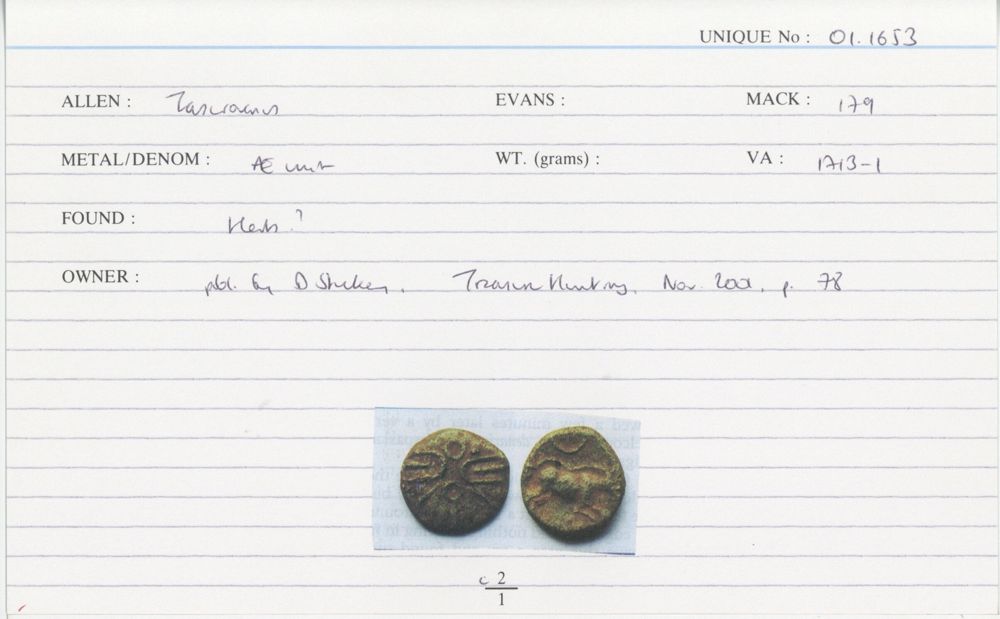 UNIQUE No : 01.1653
ALLEN : Tasciovanus EVANS : MACK : 179
METAL/DENOM : Æ unit WT. (grams) : VA : 1713-1
FOUND : Herts ?
OWNER : pbl. by D Stuckey, Treasure Hunting, Nov. 2001, p. 78
wed a few minutes later by a ver
c 2
1